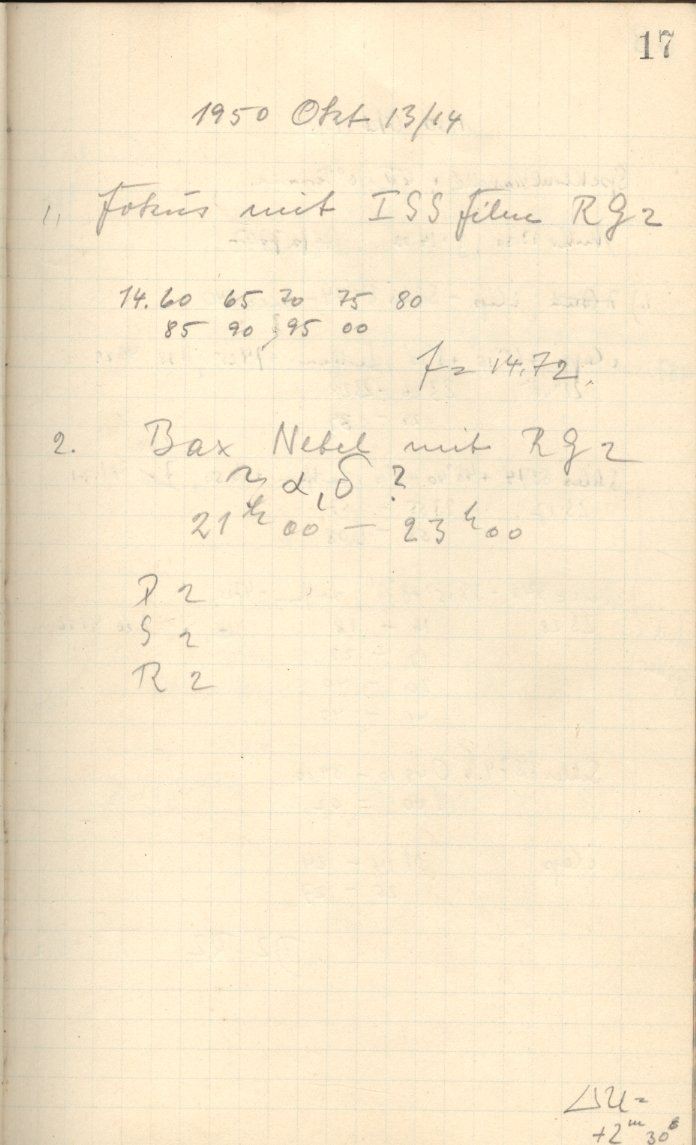 17
1950 Okt 13/14
1, Fokus mit ISS Film RG2
14.60 65 70 75 80
85 90 95 00
f = 14.72.
2. Bax Nebel mit RG2
α, δ ?
21ʰ00 – 23ʰ00
P 2
S 2
R 2
ΔU =
+2ᵐ 30ˢ